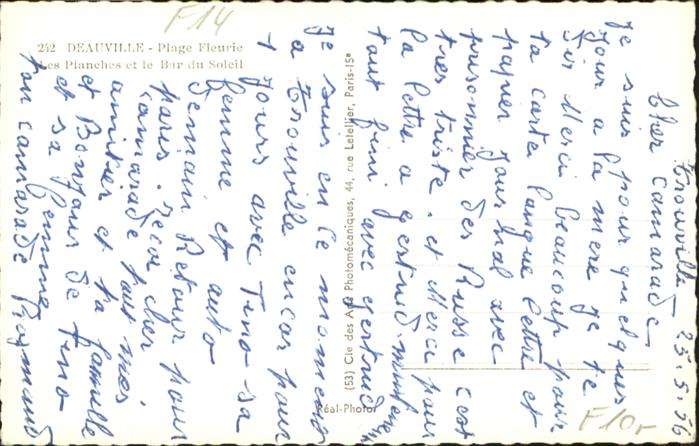 F14
242 DEAUVILLE - Plage Fleurie
Les Planches et le Bar du Soleil
(53) Cie des Arts Photomécaniques, 44, rue Letellier, Paris-15e
Réal-Photo
Trouville 23.5.76
Cher camarade
Je suis pour quelques
Jour a la mere Je te
dir Merci beaucoup pour
ta carte. langue lettre et
papier Jour mal avec
prisonnier des Russe c'est
tres triste. et Merci pour
la lettre a gertrud
tout fini avec gertrud
Je suis en ce moment
a Trouville encor pour
Jours avec Tino sa
femme et auto
Demain Retour pour
paris. recoi cher
camarade tout mes
amitier et ta famille
et Bonjour de Tino
et sa femme
ton camarade Raymond
F10,-